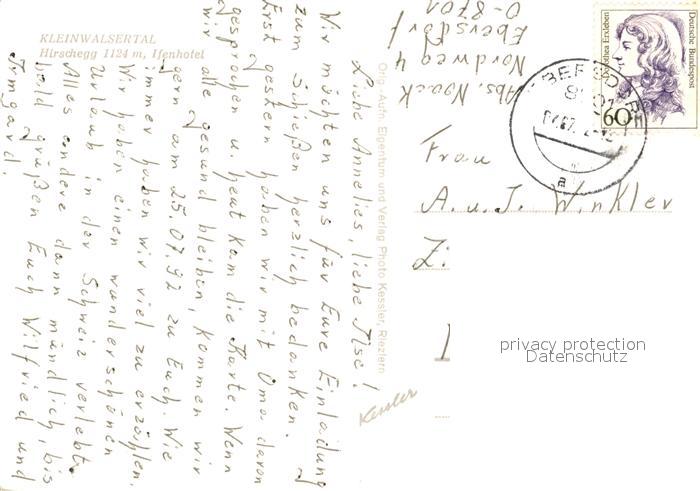 KLEINWALSERTAL
Hirschegg 1124 m, Ifenhotel
Liebe Annelies, liebe Ilse!
Wir möchten uns für Eure Einladung
zum Schießen herzlich bedanken.
Erst gestern haben wir mit Oma davon
gesprochen u. heut kam die Karte. Wenn
wir alle gesund bleiben, kommen wir
gern am 25.07.92 zu Euch. Wie
immer haben wir viel zu erzählen.
Wir haben einen wunderschönen
Urlaub in der Schweiz verlebt.
Alles andere dann mündlich, bis
bald grüßen Euch Wilfried und
Irmgard.
Orig.-Aufn. Eigentum und Verlag Photo Kessler, Riezlern
Kessler
Abs. Noack
Nordweg 4
Ebersdorf
O-8701
Deutsche Bundespost
Dorothea Erxleben
60
EBERSDORF
8701
a
Frau
A. u. I. Winkler
Z
privacy protection
Datenschutz